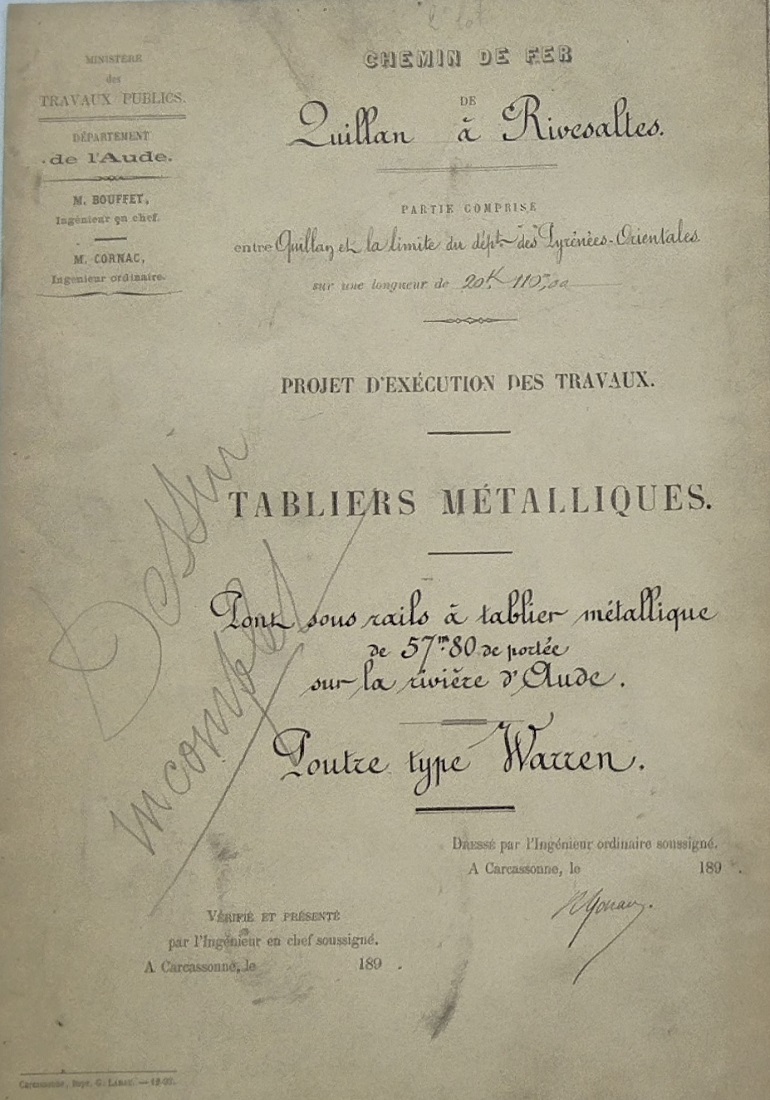 MINISTÈRE
des
TRAVAUX PUBLICS.
DÉPARTEMENT
de l'Aude.
M. BOUFFET,
Ingénieur en chef.
M. CORNAC,
Ingénieur ordinaire.
CHEMIN DE FER
DE
Quillan à Rivesaltes.
PARTIE COMPRISE
entre Quillan et la limite du dépt. des Pyrénées-Orientales.
sur une longueur de 20K 110m,00
PROJET D'EXÉCUTION DES TRAVAUX.
TABLIERS MÉTALLIQUES.
Dessin
incomplet
Pont sous rails à tablier métallique
de 57m80 de portée
sur la rivière d'Aude.
Poutre type Warren.
DRESSÉ par l'Ingénieur ordinaire soussigné.
A CARCASSONNE, le 189 .
VÉRIFIÉ ET PRÉSENTÉ
par l'Ingénieur en chef soussigné.
A CARCASSONNE, le 189 .
Carcassonne, Impr. G.